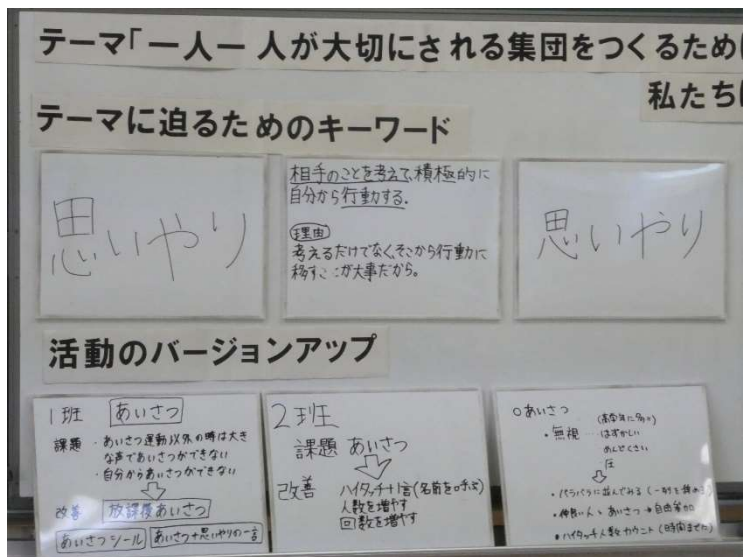 テーマ「一人一人が大切にされる集団をつくるため
私たち
テーマに迫るためのキーワード
思いやり
相手のことを考えて、積極的に
自分から行動する。
理由
考えるだけでなく、そこから行動に
移すことが大事だから。
思いやり
活動のバージョンアップ
1班 あいさつ
課題 ・あいさつ運動以外の時は大き
な声であいさつができない
・自分からあいさつができない
改善 放課後あいさつ
あいさつシール あいさつ+思いやりの一言
2班
課題 あいさつ
改善 ハイタッチ+1言(名前を呼ぶ)
人数を増やす
回数を増やす
○あいさつ
・無視 … はずかしい
めんどくさい
圧
・バラバラに並んでみる
・仲良い人 あいさつ → 自由参加
・ハイタッチ人数カウント